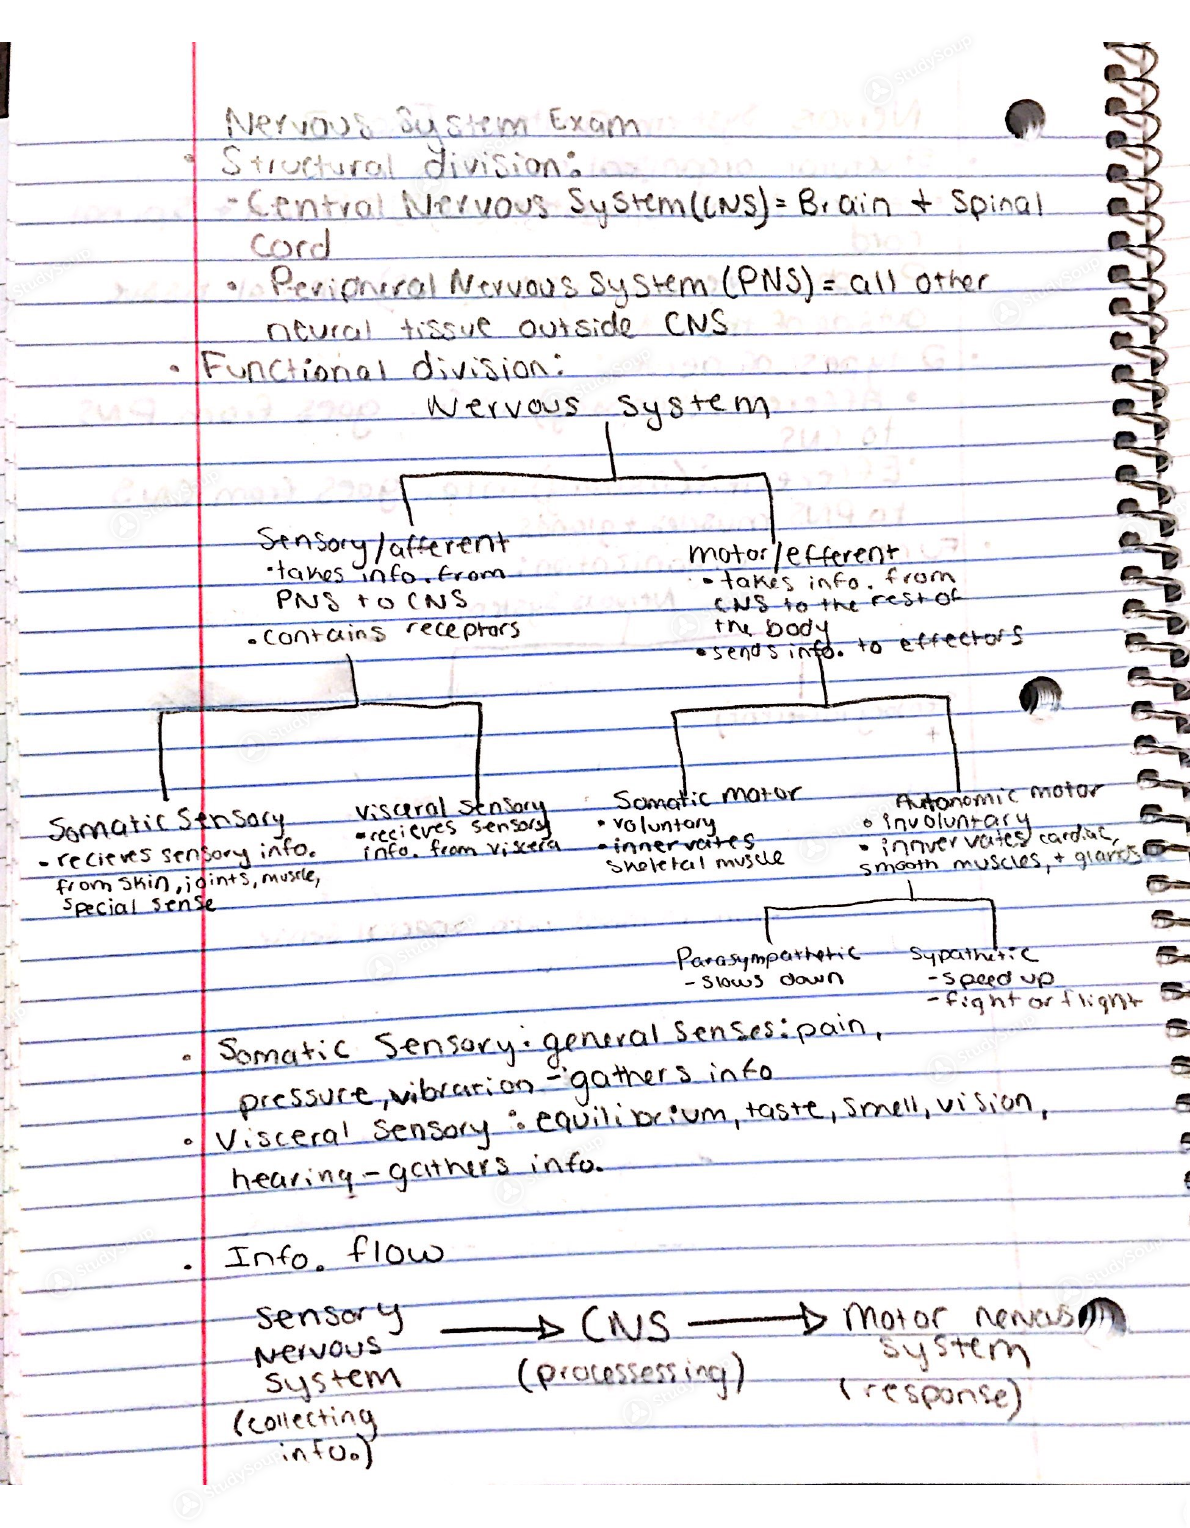 Nervous System Exam
• Structural division:
- Central Nervous System (CNS) = Brain + Spinal
cord
• Peripheral Nervous System (PNS) = all other
neural tissue outside CNS
• Functional division:
Nervous System
Sensory/afferent
• takes info. from
PNS to CNS
• contains receptors
motor/efferent
• takes info. from
CNS to the rest of
the body
• sends info. to effectors
Somatic Sensory
• recieves sensory info.
from skin, joints, muscle,
special sense
visceral sensory
• recieves sensory
info. from viscera
Somatic motor
• voluntary
• innervates
skeletal muscle
Autonomic motor
• involuntary
• innvervates cardiac,
smooth muscles, + glands
Parasympathetic
- slows down
Sypathetic
- speed up
- fight or flight
• Somatic Sensory: general senses: pain,
pressure, vibration - gathers info
• Visceral Sensory: equilibrium, taste, smell, vision,
hearing - gathers info.
• Info. flow
Sensory
Nervous
System
(collecting
info.)
→ CNS
(processessing)
→ Motor nervous
system
(response)
StudySoup